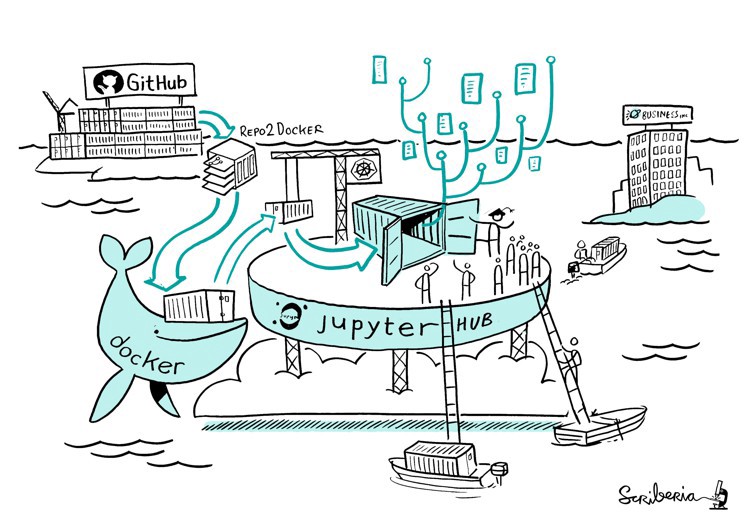 GitHub
REPO2DOCKER
BUSINESS INC
docker
jupyter HUB
Scriberia